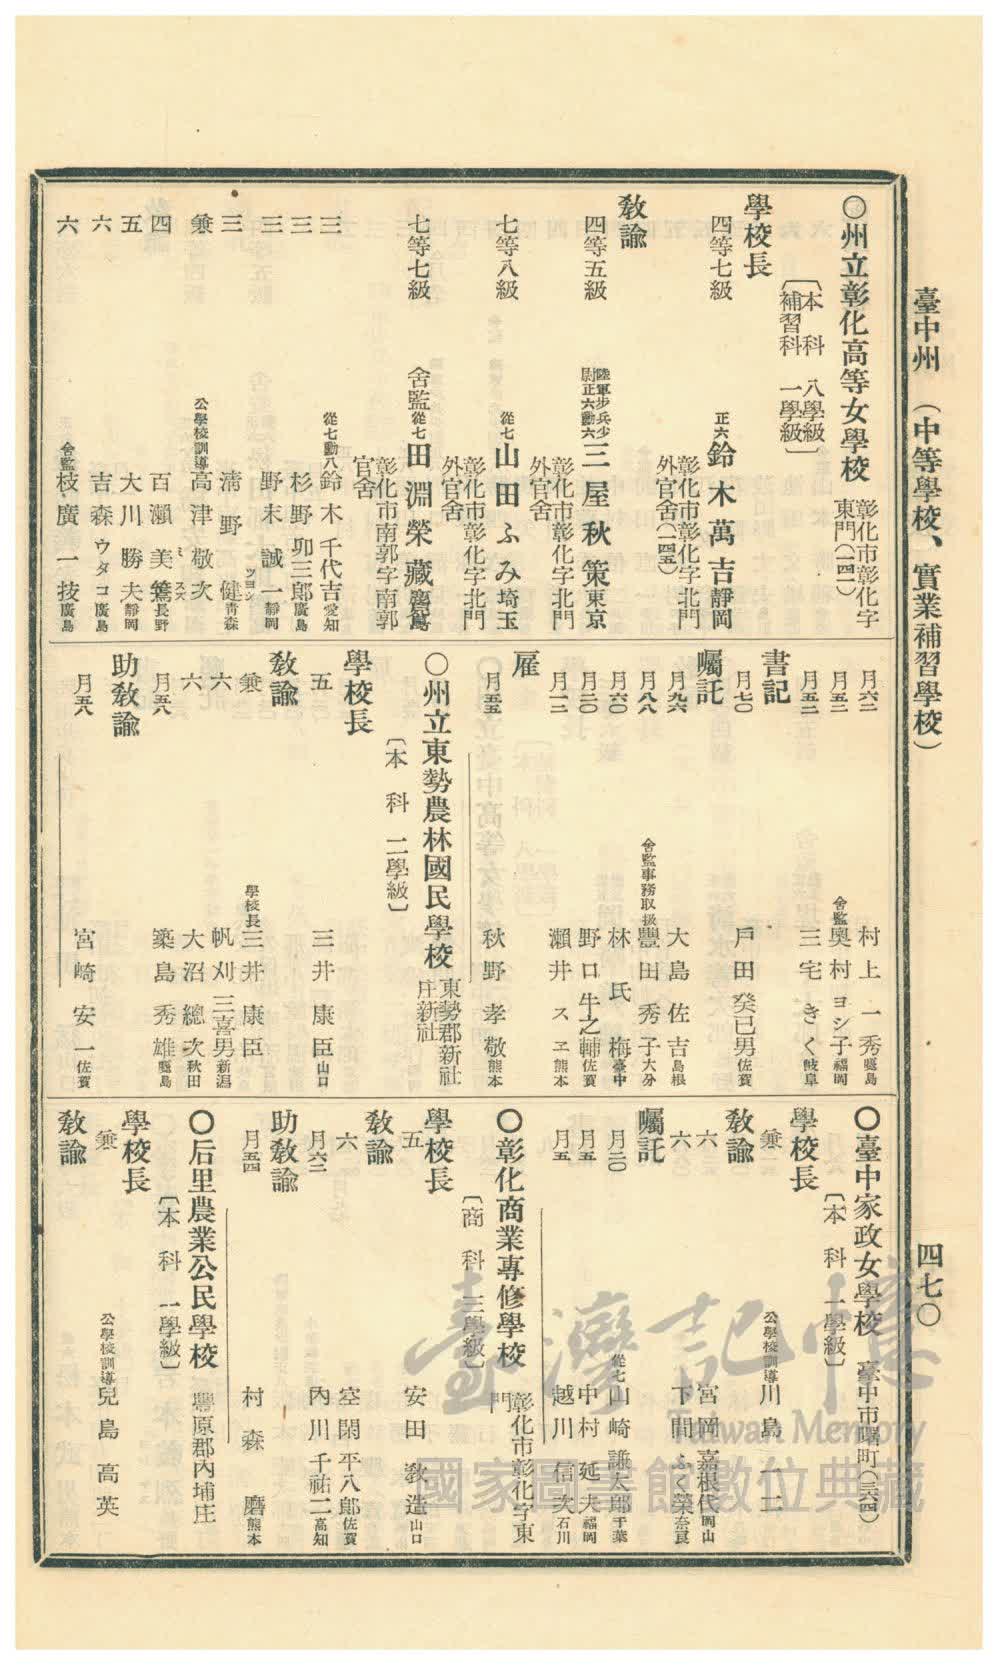 臺中州 (中等學校、實業補習學校)
四七〇
〇州立彰化高等女學校 彰化市彰化字東門(一四一)
〔本科 八學級
補習科 一學級〕
學校長
四等七級 正六 鈴木萬吉 靜岡
彰化市彰化字北門外官舍(一四五)
敎諭
四等五級 陸軍步兵少尉正六勳六 三屋秋策 東京
彰化市彰化字北門外官舍
七等八級 從七 山田ふみ 埼玉
彰化市彰化字北門外官舍
七等七級 舍監 從七 田淵榮藏
彰化市南郭字南郭官舍
三 從七勳八 鈴木千代吉 愛知
三 杉野卯三郎 廣島
三 野末誠一 靜岡
三 淸野健 ツヨシ 靑森
兼 公學校訓導 高津敬次
四 百瀨美 長野
五 大川勝夫 靜岡
六 吉森ウタコ 廣島
六 舍監 枝廣一技 廣島
月六二 村上一秀 廣島
月五二 舍監 奧村ヨシ子 福岡
月五二 三宅きく 岐阜
書記
月七〇 戶田癸巳男 佐賀
囑託
月九六 大島佐吉 島根
月八八 舍監事務取扱 豐田秀子 大分
月六〇 林氏梅 臺中
月二〇 野口牛之輔 佐賀
月一二 瀨井スヱ 熊本
雇
月五五 秋野孝敬 熊本
〇州立東勢農林國民學校 東勢郡新社庄新社
〔本科 二學級〕
學校長
五 三井康臣 山口
敎諭
兼 學校長 三井康臣
六 帆刈三喜男 新潟
六 大沼總次 秋田
月五八 築島秀雄 廣島
助敎諭
月五八 宮崎安一 佐賀
〇臺中家政女學校 臺中市曙町(三六四)
〔本科 一學級〕
學校長
兼 公學校訓導 川島一二
敎諭
六 宮岡嘉根代 岡山
六 下間ふく榮 奈良
囑託
月二〇 從七 山崎謙太郎 千葉
月五 中村延夫 福岡
月五 越川信次 石川
〇彰化商業專修學校 彰化市彰化字東門
〔商科 三學級〕
學校長
五 安田敎造 山口
敎諭
六 空閑平八郞 佐賀
月六二 內川千祐二 高知
助敎諭
月五四 村森磨 熊本
〇后里農業公民學校 豐原郡內埔庄
〔本科 一學級〕
學校長
兼 公學校訓導 兒島高英
敎諭
臺灣記憶
Taiwan Memory
國家圖書館數位典藏